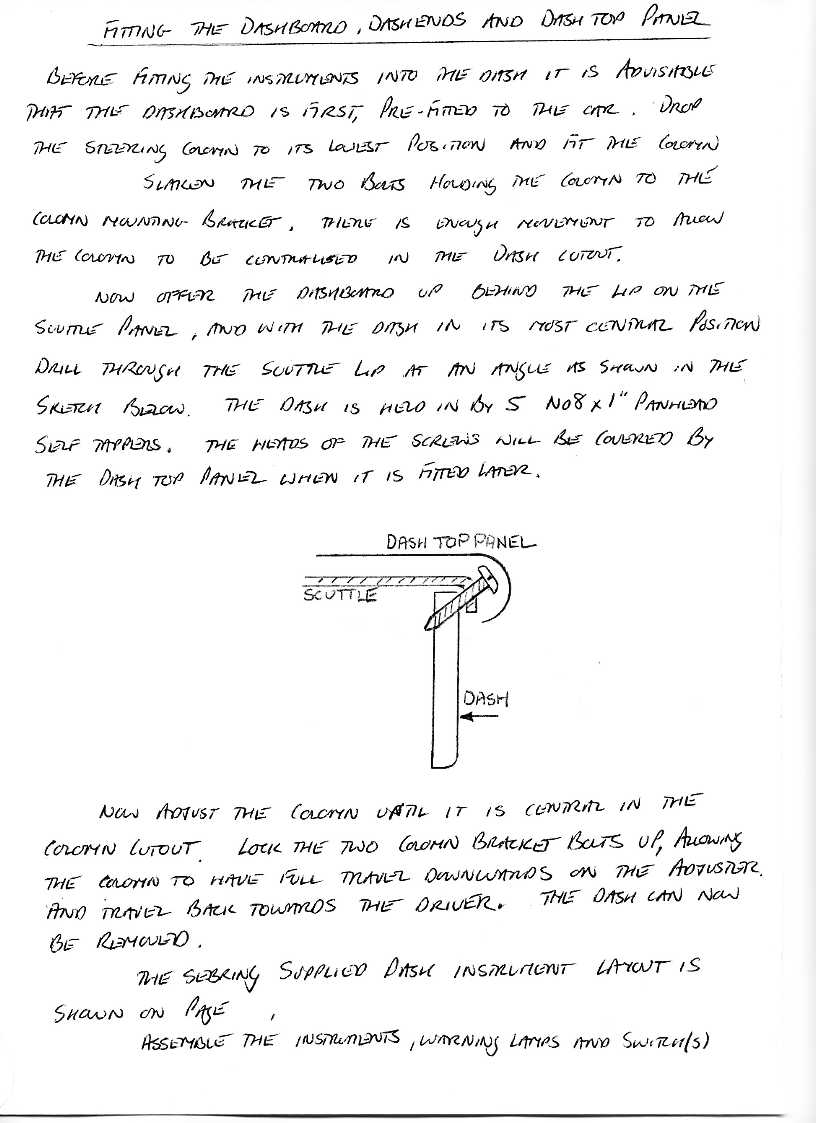 FITTING THE DASHBOARD, DASH ENDS AND DASH TOP PANEL
BEFORE FITTING THE INSTRUMENTS INTO THE DASH IT IS ADVISABLE
THAT THE DASHBOARD IS FIRST, PRE-FITTED TO THE CAR. DROP
THE STEERING COLOMN TO ITS LOWEST POSITION AND FIT THE COLOMN
SLACKEN THE TWO BOLTS HOLDING THE COLOMN TO THE
COLOMN MOUNTING BRACKET. THERE IS ENOUGH MOVEMENT TO ALLOW
THE COLOMN TO BE CENTRALISED IN THE DASH CUTOUT.
NOW OFFER THE DASHBOARD UP BEHIND THE LIP ON THE
SCUTTLE PANEL, AND WITH THE DASH IN ITS MOST CENTRAL POSITION
DRILL THROUGH THE SCUTTLE LIP AT AN ANGLE AS SHOWN IN THE
SKETCH BELOW. THE DASH IS HELD IN BY 5 NO8 X 1" PANHEAD
SELF TAPPERS. THE HEADS OF THE SCREWS WILL BE COVERED BY
THE DASH TOP PANEL WHEN IT IS FITTED LATER.
DASH TOP PANEL
SCUTTLE
DASH
NOW ADJUST THE COLOMN UNTIL IT IS CENTRAL IN THE
COLOMN CUTOUT. LOCK THE TWO COLOMN BRACKET BOLTS UP, ALLOWING
THE COLOMN TO HAVE FULL TRAVEL DOWNWARDS ON THE ADJUSTER.
AND TRAVEL BACK TOWARDS THE DRIVER. THE DASH CAN NOW
BE REMOVED.
THE SEBRING SUPPLIED DASH INSTRUMENT LAYOUT IS
SHOWN ON PAGE ,
ASSEMBLE THE INSTRUMENTS, WARNING LAMPS AND SWITCH(S)